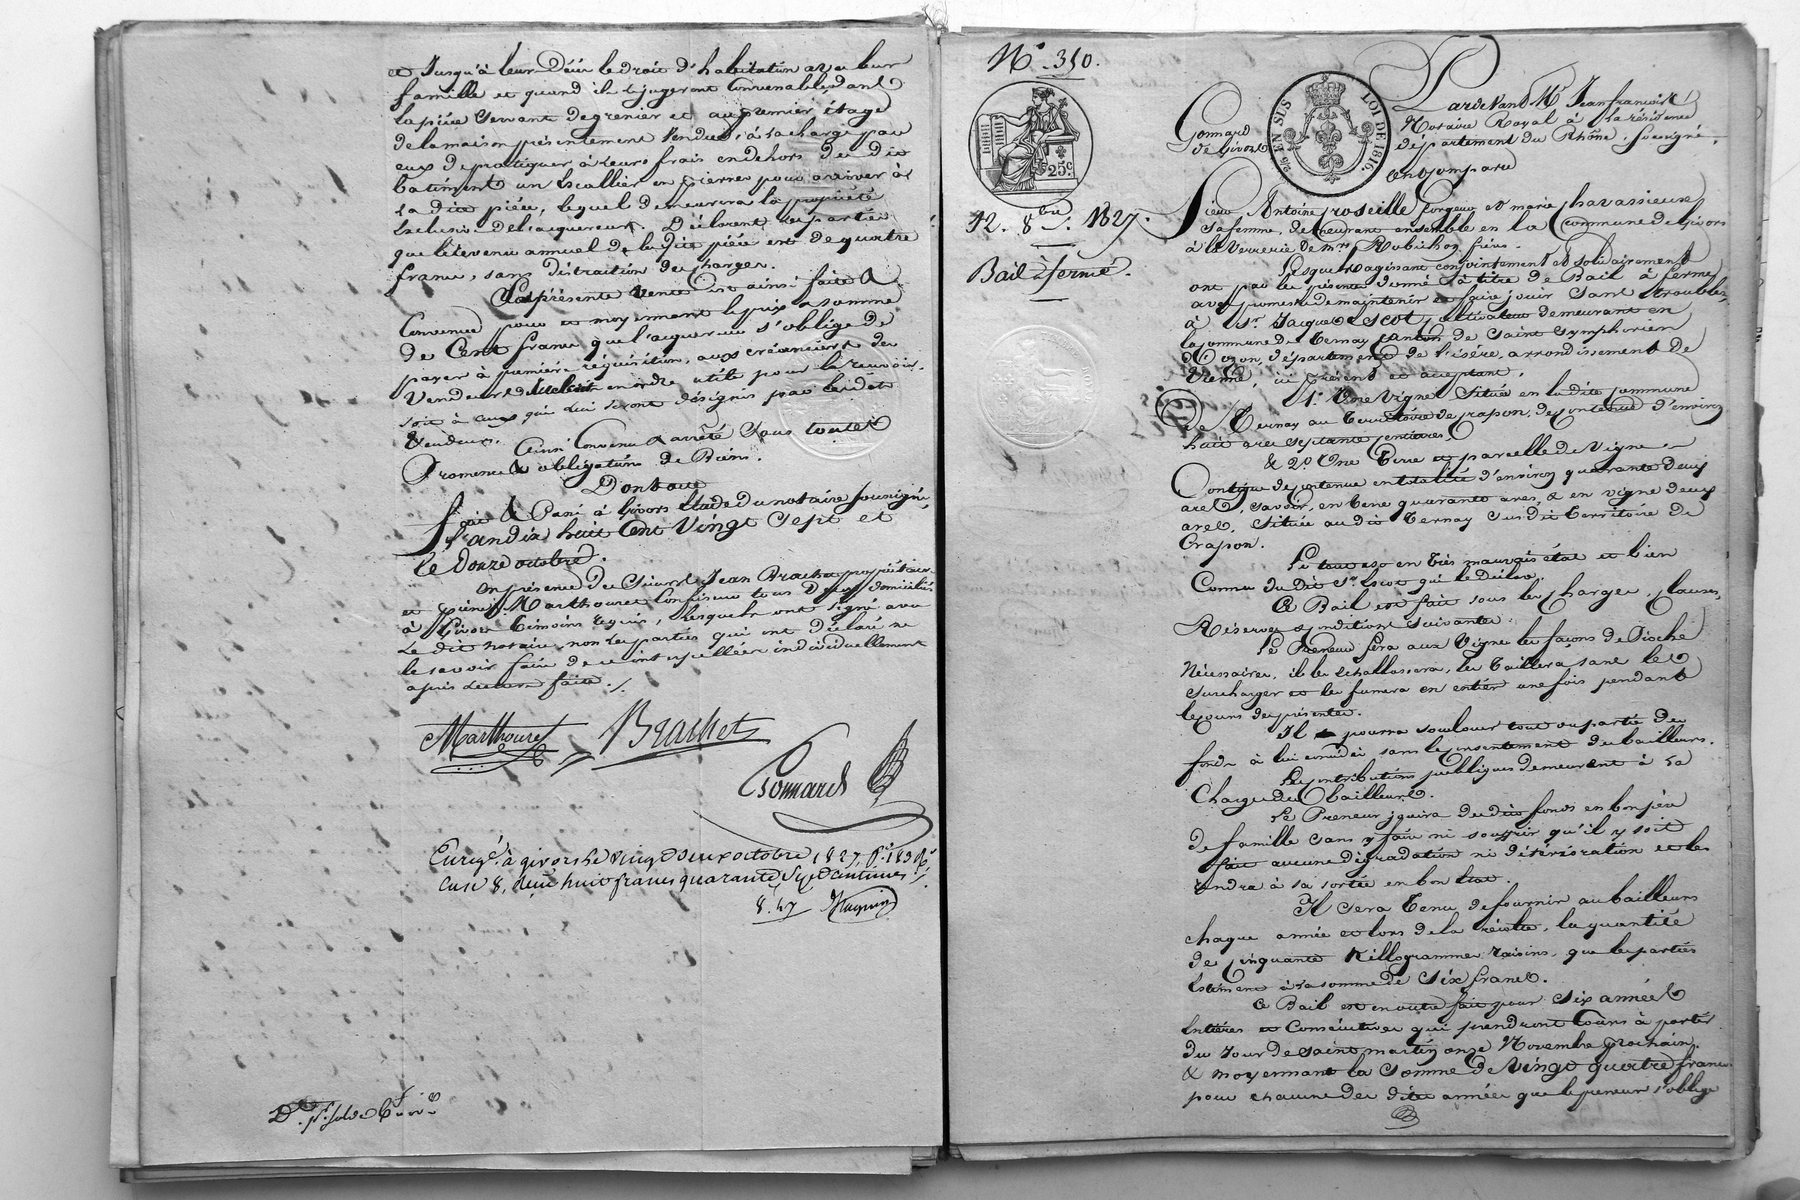 et Jusqu'à leur Décès le droit d'habitation avec leur
famille et quand ils le jugeront Convenable dans
la pièce servant de grenier et au premier étage
de la maison présentement vendue, à la charge par
eux de pratiquer à leurs frais en dehors du dit
batiment un Escallier en pierres pour arriver à
la dite pièce, lequel demeurera la propriété
Exclusive de l'acquereur. Déclarent les parties
que le revenu annuel de la dite pièce est de quatre
francs, sans distraction des charges.
La présente vente est ainsi faite &
Convenue pour et moyennant le prix & somme
de Cent francs que l'acquereur s'oblige de
payer à première réquisition, aux créanciers des
Vendeurs en ordre utile pour le recevoir,
soit à ceux qui lui seront désignés par les dits
Vendeurs.
Ainsi Convenu & arrêté sous toutes
Promesses & obligations de Biens.
Dont acte
fait & Passé à Givors Etude du notaire soussigné,
l'an dix huit Cent Vingt Sept et
le Douze octobre.
En présence des Sieurs Jean Brachet propriétaire
et Marthouret Confiseur tous Deux domiciliés
à Givors Témoins requis, lesquels ont signé avec
le dit notaire, non les parties qui ont déclaré ne
le savoir faire de ce interpellées individuellement
après lecture faite.
Marthouret Brachet
Gonnard
Enregé. à givors le vingt deux octobre 1827, fo. 183 Ro.
case 8, reçu huit francs quarante sept centimes
8.47
No. 350.
25c.
12. 8bre. 1827.
Bail à ferme.
EN SUS LOI DE 1816.
Gonnard
de Givors
Pardevant Me. Jean françois
Notaire Royal à la résidence
département du Rhône, soussigné.
Ont Comparu
Sieur Antoine proseille forgeur et marie chavassieux
sa femme, demeurant ensemble en la Commune de Givors
à la Verrerie de Mrs. Robichon frères.
Lesquels agissant conjointement et solidairement
ont par les présentes donné à titre de Bail à ferme
avec promesse de maintenir et faire jouir sans troubles,
à Sr. Jacques Escot, cultivateur demeurant en
la commune de Ternay Canton de Saint Symphorien
d'Ozon, département de l'isère, arrondissement de
Vienne, ici présent et acceptant,
1o. Une Vigne Située en la dite Commune
de Ternay au territoire de Crapon, de contenue d'environ
huit ares septante centiares,
& 2o. Une Terre et parcelle de Vigne
Contigue de contenue en totalité d'environ quarante deux
ares, savoir, en terre quarante ares, & en vigne deux
ares, Située au dit Ternay susdit territoire de
Crapon.
Le tout est en très mauvais état et bien
Connu du dit Sr. Escot qui le déclare.
Ce Bail est fait sous les Charges, Clauses,
Réserves & conditions suivantes.
Le Preneur fera aux Vignes les façons de Pioche
Nécessaires, il les échallassera, les taillera sans les
surcharger et les fumera en entier une fois pendant
le cours des présentes.
Il pourra souslouer tout ou partie des
fonds à lui amodiés sans le consentement des bailleurs.
Les contributions publiques demeurent à la
Charge des Bailleurs.
Le Preneur jouira des dits fonds en bon père
de famille sans y faire ni souffrir qu'il y soit
fait aucune dégradation ni détérioration et les
rendra à sa sortie en bon état.
Il sera tenu de fournir aux bailleurs
chaque année et lors de la récolte, la quantité
de cinquante Killogrammes raisins, que les parties
estiment à la somme de Six francs.
Ce Bail est en outre fait pour Six années
Entières et Consécutives qui prendront Cours à partir
du Jour de saint martin onze Novembre prochain,
& moyennant la Somme de Vingt quatre francs
pour chacune des dites années que le preneur s'oblige